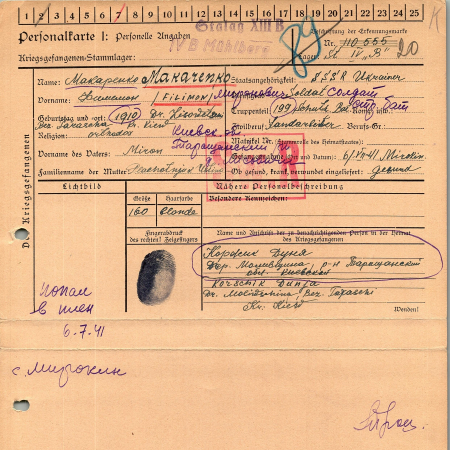 1 2 3 4 5 6 7 8 9 10 11 12 13 14 15 16 17 18 19 20 21 22 23 24 25
K
Personalkarte I: Personelle Angaben
Stalag XIII B
IV B Mühlberg
Kriegsgefangenen-Stammlager:
Beschriftung der Erkennungsmarke
Nr. 110 555
Lager: St. IV „B"
20
Name: Макаренко Makarenko
Staatsangehörigkeit: USSR Ukrainer
Vorname: Филимон /FILIMON/ Миронович
Dienstgrad: Soldat солдат
Geburtstag und -ort: (1910)
Truppenteil: (199)
Religion: ortodox
Киевск об.
Таращанский
Zivilberuf: Landarbeiter Berufs-Gr.:
Matrikel Nr. (Stammrolle des Heimatstaates):
Vorname des Vaters: Miron
Gefangennahme (Ort und Datum): 6/VII 41
Familienname der Mutter:
Ob gesund, krank, verwundet eingeliefert: gesund
Des Kriegsgefangenen
Lichtbild
Nähere Personalbeschreibung
Größe
Haarfarbe
Besondere Kennzeichen:
160
blonde
Fingerabdruck
des rechten! Zeigefingers
Name und Anschrift der zu benachrichtigenden Person in der Heimat
des Kriegsgefangenen
Коржик Дуня
Дер. р-н Таращанский
обл. киевская
Korschik Dunja
Kr. Kiew
Wenden!
попал
в плен
6.7.41
с. Мирокин